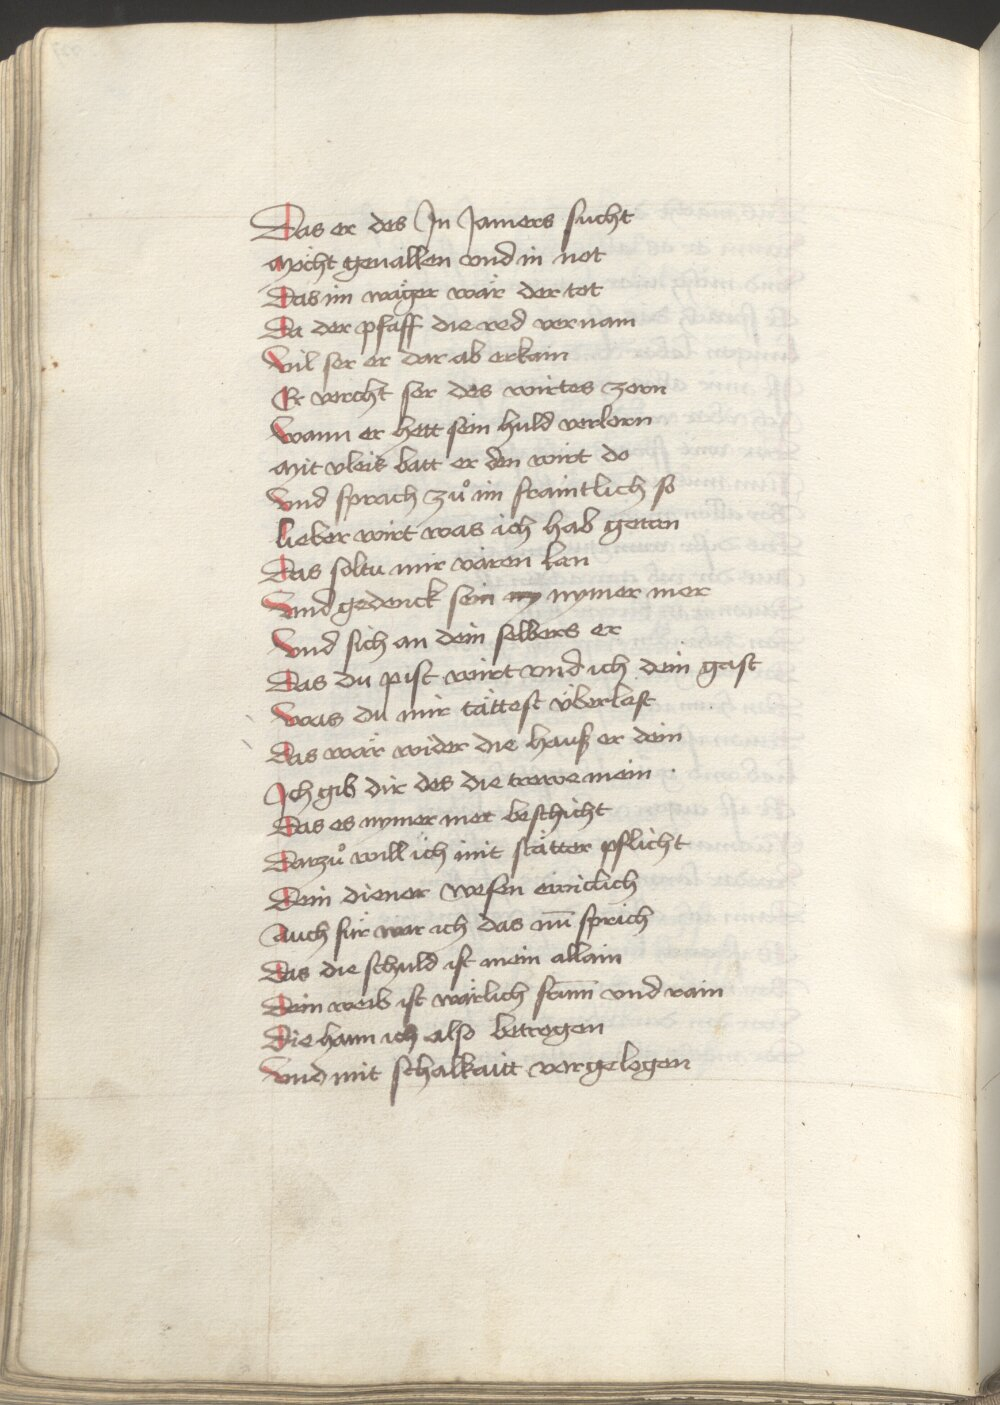 Das er des Jn Jamers sucht
Möcht geuallen vnd in not
Das im wäger wär der tot
Da der pfaff die red vernam
Vil ser er dar ab erkam
Er vorcht ser des wirtes zorn
Wann er hett sein huld verlorn
Mit vleis batt er den wirt do
Vnd sprach zů im fraintlich so
Lieber wirt was ich hab getan
Das soltu mir varen lan
Vnd gedenck sein nymer mer
Vnd sich an dein selbers er
Das du pist wirt vnd ich dein gast
Was du mir tättest v̈berlast
Das wär wider die hauß er dein
Jch gib dir des die trewe mein
Das es nymer mer beschicht
Darzů will ich mit stätter pflicht
Dein diener wesen ewiclich
Auch für war ich das nū sprich
Das die schuld ist mein allain
Dein weib ist wärlich frūm vnd rain
Die hann ich also betrogen
Vnd mit schalkaitt vorgelogen